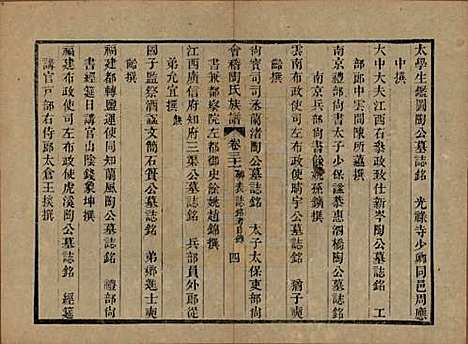 太學生鑑圓陶公墓誌銘　光祿寺少卿同邑周應
中撰
大中大夫江西右參政致仕新岑陶公墓誌銘　工
部郎中雲間陳所蘊撰
南京禮部尚書贈太子少保諡恭惠泗橋陶公墓誌銘
南京兵部尚書餘姚孫鑛撰
雲南布政使司左布政使疇宇陶公墓誌銘　猶子奭
齡撰
尚寶司司丞蘭渚陶公墓誌銘　太子太保吏部尚
書兼都察院左都御史餘姚趙錦撰
會稽陶氏族譜　卷三十　四
江西廣信府同知三渠公墓誌銘　兵部員外郎從
弟允宜撰
國子監祭酒諡文簡石簣公墓誌銘　弟鄉進士奭
齡撰
福建都轉鹽運使同知蘭風陶公墓誌銘　禮部尚
書經筵日講官山陰錢象坤撰
福建布政使司左布政使虎溪陶公墓誌銘　經筵
講官戶部右侍郎太倉王掞撰